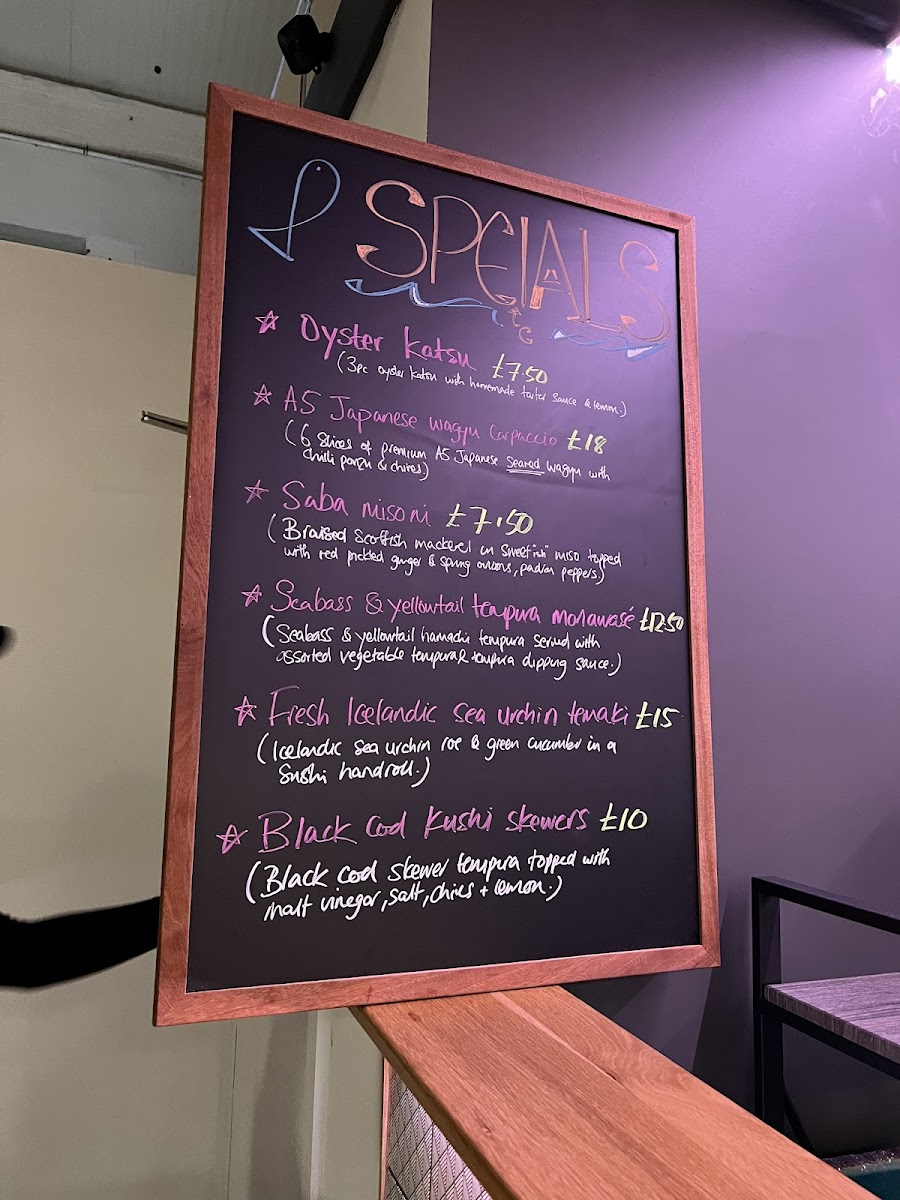 SPECIALS
Oyster Katsu £7.50
(3pc oyster katsu with homemade tartar sauce & lemon.)
A5 Japanese wagyu Carpaccio £18
(6 slices of premium A5 Japanese Seared wagyu with
chilli ponzu & chives)
Saba misoni £7.50
(Braised Scottish mackerel in sweet"ish" miso topped
with red pickled ginger & spring onions, padron peppers.)
Seabass & yellowtail tempura moriawasé £12.50
(Seabass & yellowtail hamachi tempura served with
assorted vegetable tempura & tempura dipping sauce.)
Fresh Icelandic sea urchin temaki £15
(Icelandic sea urchin roe & green cucumber in a
sushi handroll.)
Black Cod Kushi skewers £10
(Black cod skewer tempura topped with
malt vinegar, salt, chives + lemon.)